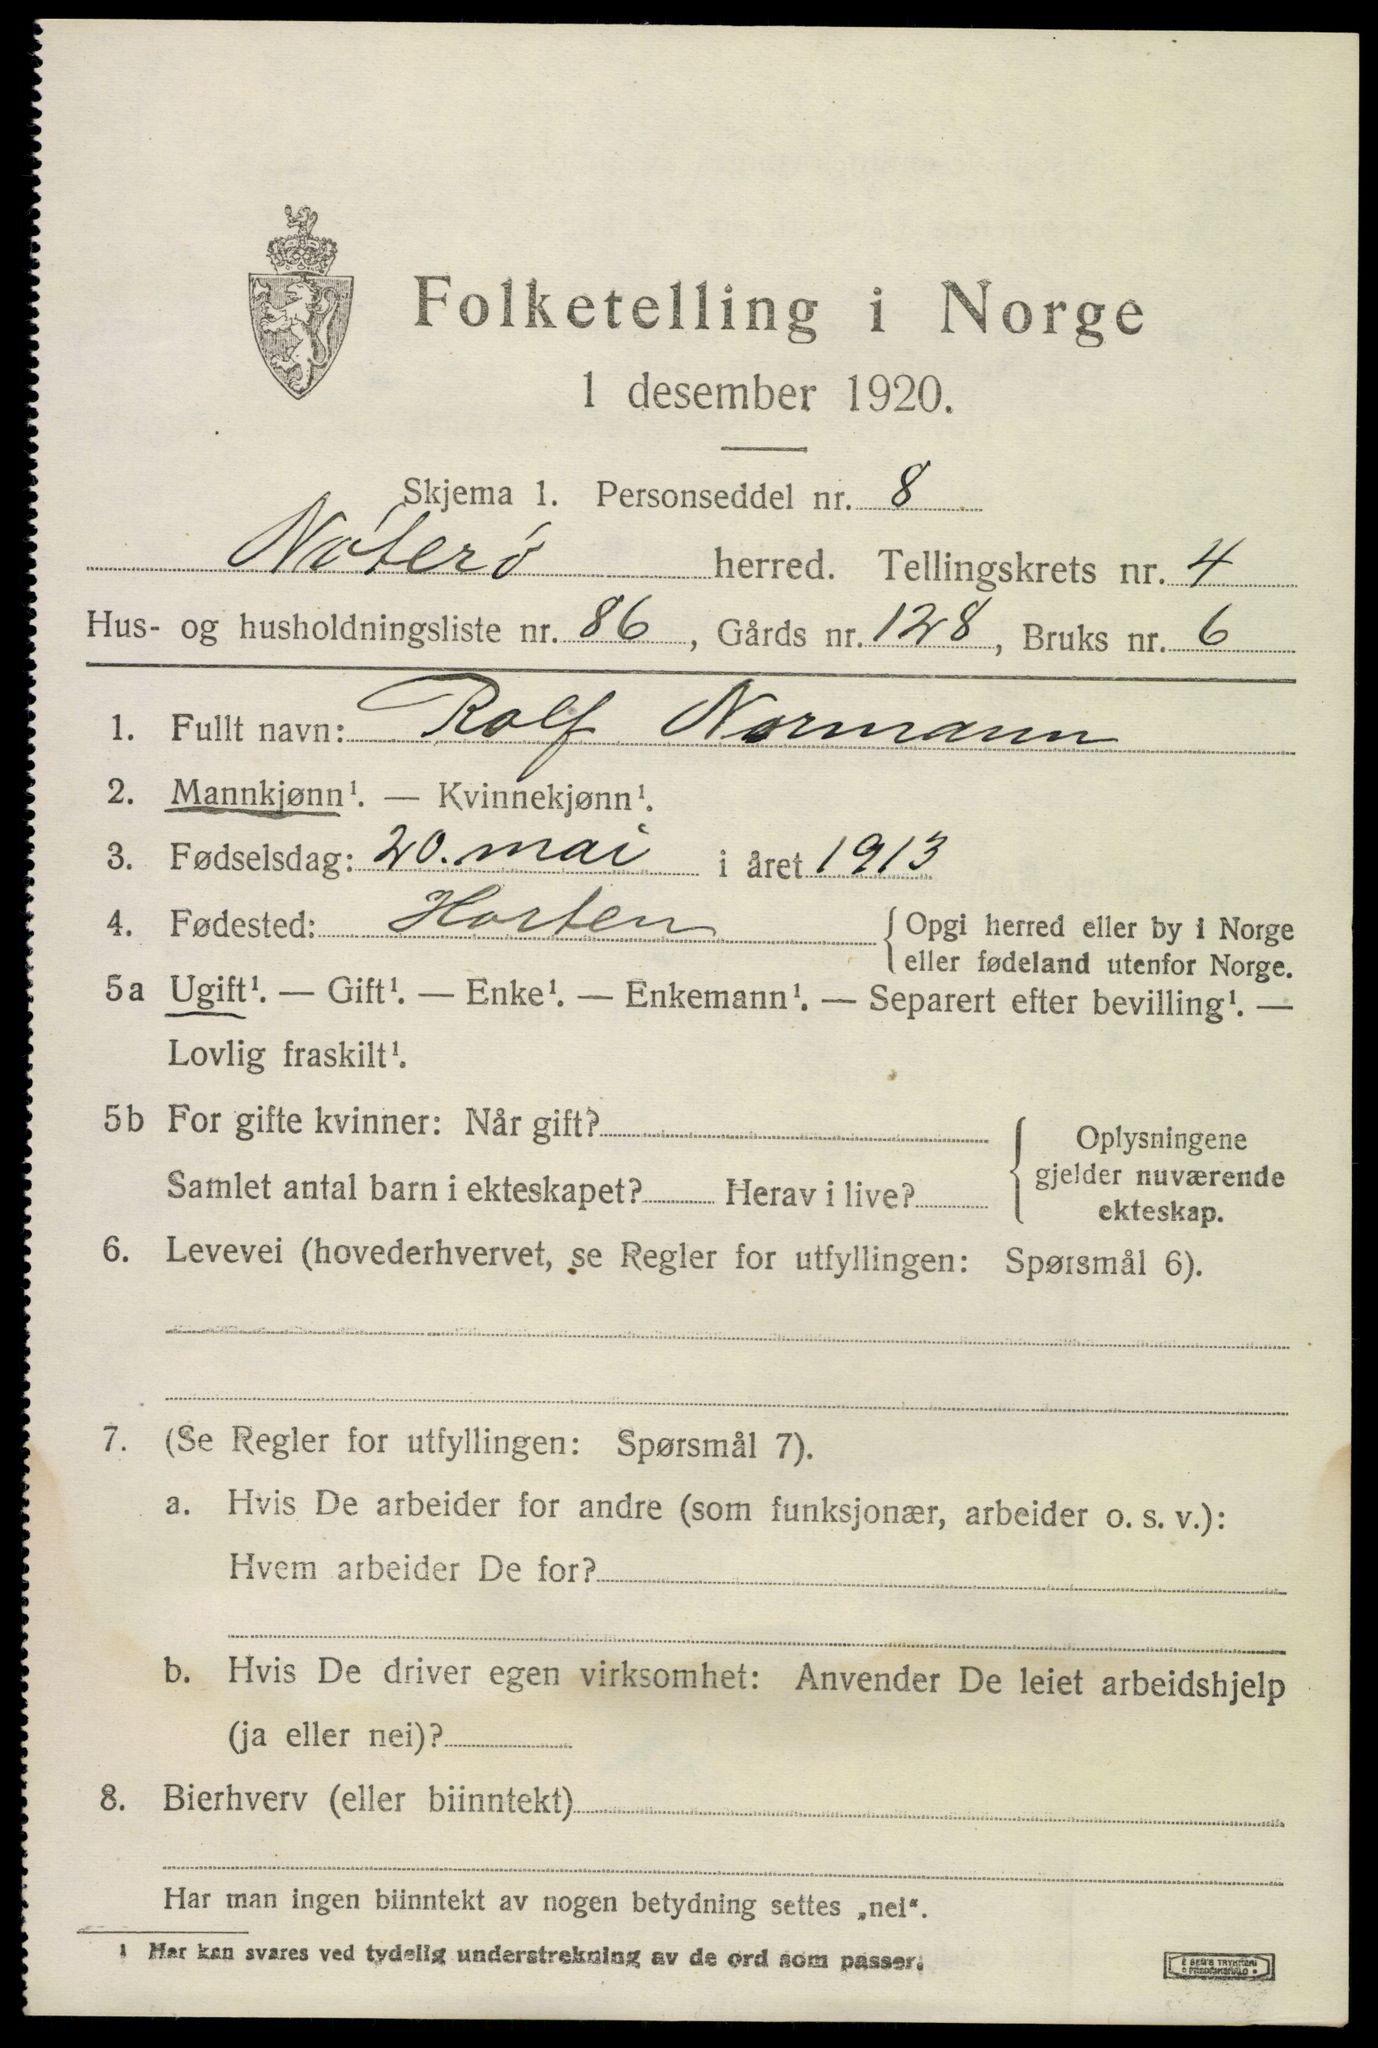 Folketelling i Norge
1 desember 1920.
Skjema 1. Personseddel nr. 8
Nøterø herred. Tellingskrets nr. 4
Hus- og husholdningsliste nr. 86, Gårds nr. 128, Bruks nr. 6
1. Fullt navn: Rolf Normann
2. Mannkjønn¹. — Kvinnekjønn¹.
3. Fødselsdag: 20. mai i året 1913
4. Fødested: Horten { Opgi herred eller by i Norge
eller fødeland utenfor Norge.
5a Ugift¹. — Gift¹. — Enke¹. — Enkemann¹. — Separert efter bevilling¹. —
Lovlig fraskilt¹.
5b For gifte kvinner: Når gift?
Samlet antal barn i ekteskapet? Herav i live?
Oplysningene
gjelder nuværende
ekteskap.
6. Levevei (hovederhvervet, se Regler for utfyllingen: Spørsmål 6).
7. (Se Regler for utfyllingen: Spørsmål 7).
a. Hvis De arbeider for andre (som funksjonær, arbeider o. s. v.):
Hvem arbeider De for?
b. Hvis De driver egen virksomhet: Anvender De leiet arbeidshjelp
(ja eller nei)?
8. Bierhverv (eller biinntekt)
Har man ingen biinntekt av nogen betydning settes „nei“.
1 Her kan svares ved tydelig understrekning av de ord som passer.